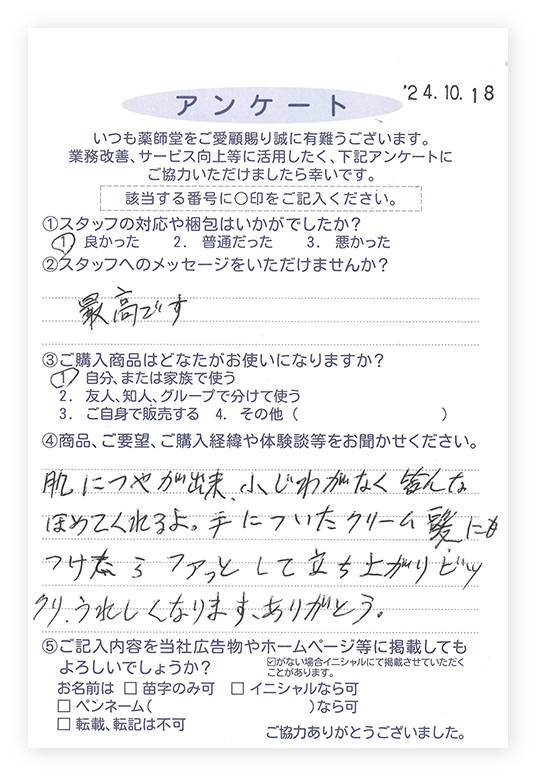 '24.10.18
アンケート
いつも薬師堂をご愛顧賜り誠に有難うございます。
業務改善、サービス向上等に活用したく、下記アンケートに
ご協力いただけましたら幸いです。
該当する番号に○印をご記入ください。
①スタッフの対応や梱包はいかがでしたか？
1. 良かった 2. 普通だった 3. 悪かった
②スタッフへのメッセージをいただけませんか？
最高です
③ご購入商品はどなたがお使いになりますか？
1. 自分、または家族で使う
2. 友人、知人、グループで分けて使う
3. ご自身で販売する 4. その他（ ）
④商品、ご要望、ご購入経緯や体験談等をお聞かせください。
肌につやが出来、小じわがなく皆んな
ほめてくれるよ。手についたクリーム髪にも
つけたら ファっとして立ち上がりビッ
クリ、うれしくなります、ありがとう。
⑤ご記入内容を当社広告物やホームページ等に掲載しても
よろしいでしょうか？
☑がない場合イニシャルにて掲載させていただく
ことがあります。
お名前は □ 苗字のみ可 □ イニシャルなら可
□ ペンネーム（ ）なら可
□ 転載、転記は不可
ご協力ありがとうございました。